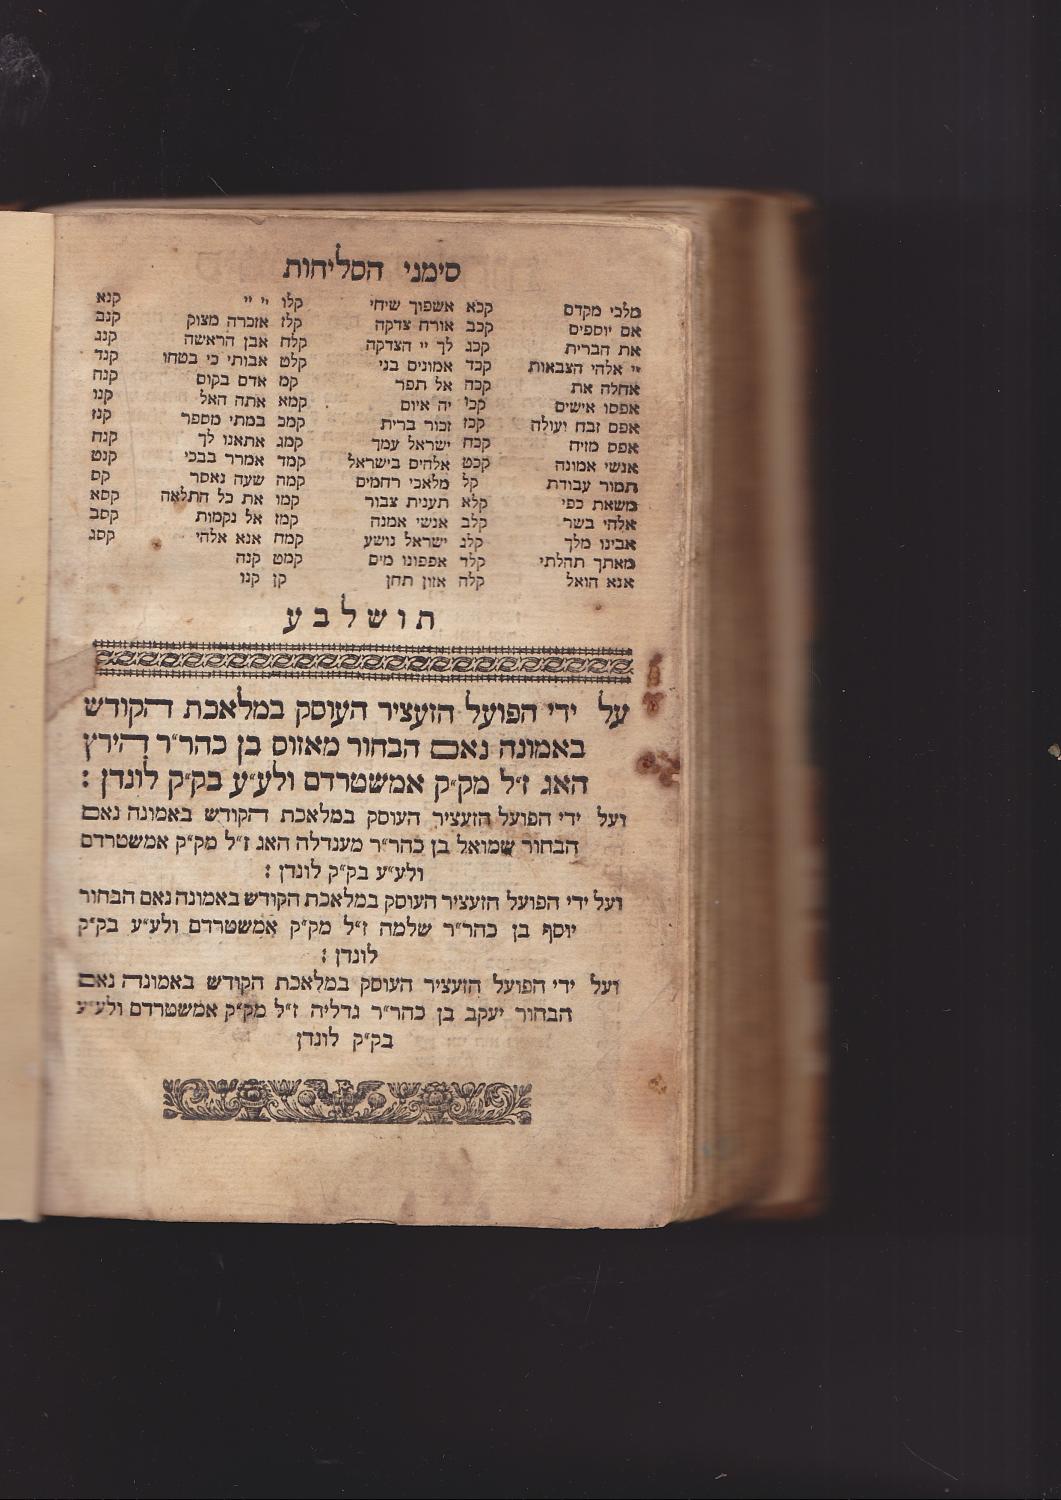 סימני הסליחות
מלכי מקדם קכא אשפוך שיחי קלו יי יי קנא
אם יוספים קכב אורח צדקה קלז אזכרה מצוק קנב
את הברית קכג לך יי הצדקה קלח אבן הראשה קנג
יי אלהי הצבאות קכד אמונים בני קלט אבותי כי בטחו קנד
אחלה את קכה אל תפר קמ אדם בקום קנה
אפסו אישים קכו יה איום קמא אתה האל קנו
אפס זבח ועולה קכז זכור ברית קמב במתי מספר קנז
אפס מזיח קכח ישראל עמך קמג אתאנו לך קנח
אנשי אמונה קכט אלהים בישראל קמד אמרר בבכי קנט
תמור עבודת קל מלאכי רחמים קמה שעה נאסר קס
משאת כפי קלא תענית צבור קמו את כל התלאה קסא
אלהי בשר קלב אנשי אמנה קמז אל נקמות קסב
אבינו מלך קלג ישראל נושע קמח אנא אלהי קסג
מאתך תהלתי קלד אפפונו מים קמט קנה
אנא הואל קלה אזון תחן קן קנו
תושלבע
על ידי הפועל הזעציר העוסק במלאכת הקודש
באמונה נאם הבחור מאזוס בן כהר״ר הירץ
האג ז״ל מק״ק אמשטרדם ולע״ע בק״ק לונדן :
ועל ידי הפועל הזעציר העוסק במלאכת הקודש באמונה נאם
הבחור שמואל בן כהר״ר מענדלה האג ז״ל מק״ק אמשטרדם
ולע״ע בק״ק לונדן :
ועל ידי הפועל הזעציר העוסק במלאכת הקודש באמונה נאם הבחור
יוסף בן כהר״ר שלמה ז״ל מק״ק אמשטרדם ולע״ע בק״ק
לונדן :
ועל ידי הפועל הזעציר העוסק במלאכת הקודש באמונה נאם
הבחור יעקב בן כהר״ר גדליה ז״ל מק״ק אמשטרדם ולע״ע
בק״ק לונדן